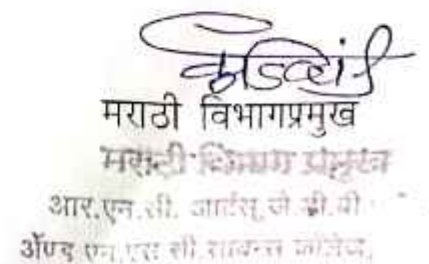 मराठी विभागप्रमुख
मराठी विभाग प्रमुख
आर.एन.सी. आर्टस्, जे.डी.बी.
अॅण्ड एन.एस.सी. सायन्स कॉलेज,